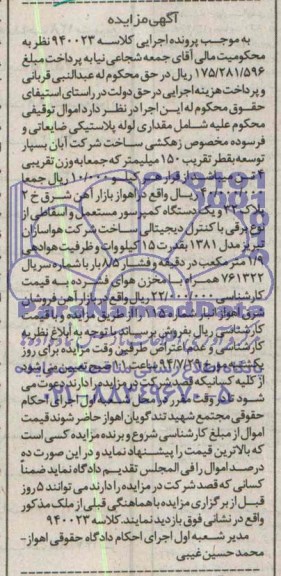 آگهی مزایده
به موجب پرونده اجرایی کلاسه ۹۴۰۰۲۳ نظر به
محکومیت مالی آقای جمعه شجاعی نیا به پرداخت مبلغ
۱۷۵/۲۸۱/۵۹۶ ریال در حق محکوم له عبدالنبی قربانی
و پرداخت هزینه اجرایی در حق دولت در راستای استیفای
حقوق محکوم له این اجرا در نظر دارد اموال توقیفی
محکوم علیه شامل مقداری لوله پلاستیکی ضایعاتی و
فرسوده مخصوص زهکشی ساخت شرکت آبان بسپار
توسعه بقطر تقریب ۱۵۰ میلیمتر که جمعا به وزن تقریبی
از قرار هر کیلو ۱۰/۰۰۰ ریال جمعا
ریال واقع در اهواز بازار آهن شرق خ ۲
پلاک ۴۲ و یک دستگاه کمپرسور مستعمل و اسقاطی از
نوع برقی با کنترل دیجیتالی ساخت شرکت هواسازان
تبریز مدل ۱۳۸۱ بقدرت ۱۵ کیلووات و ظرفیت هوادهی
۱/۹ متر مکعب در دقیقه و فشار ۸/۵ بار با شماره سریال
۷۶۱۳۲۲ همراه با مخزن هوای فشرده به قیمت
کارشناسی ۲۲/۰۰۰/۰۰۰ ریال واقع در بازار آهن فروشان
شرق اهواز انبار شماره ۱۱۵ را از طریق مزایده با قیمت
کارشناسی ریال بفروش برساند با توجه به ابلاغ نظریه
کارشناسی و عدم اعتراض طرفین وقت مزایده برای روز
مورخ ۹۴/۷/۲۹ ساعت ۱۱ صبح تعیین می شود
از کلیه کسانیکه قصد شرکت در مزایده را دارند دعوت می
شود که در وقت مقرر در محل شعبه اول اجرای احکام
حقوقی مجتمع شهید تندگویان اهواز حاضر شوند قیمت
اموال از مبلغ کارشناسی شروع و برنده مزایده کسی است
که بالاترین قیمت را پیشنهاد نماید و در این صورت ده
درصد اموال را فی المجلس تقدیم دادگاه نماید ضمناً
کسانی که قصد شرکت در مزایده را دارند می توانند ۵ روز
قبل از برگزاری مزایده با هماهنگی قبلی از ملک مذکور
واقع در نشانی فوق بازدید نمایند. کلاسه ۹۴۰۰۲۳
مدیر شعبه اول اجرای احکام دادگاه حقوقی اهواز-
محمد حسین غیبی